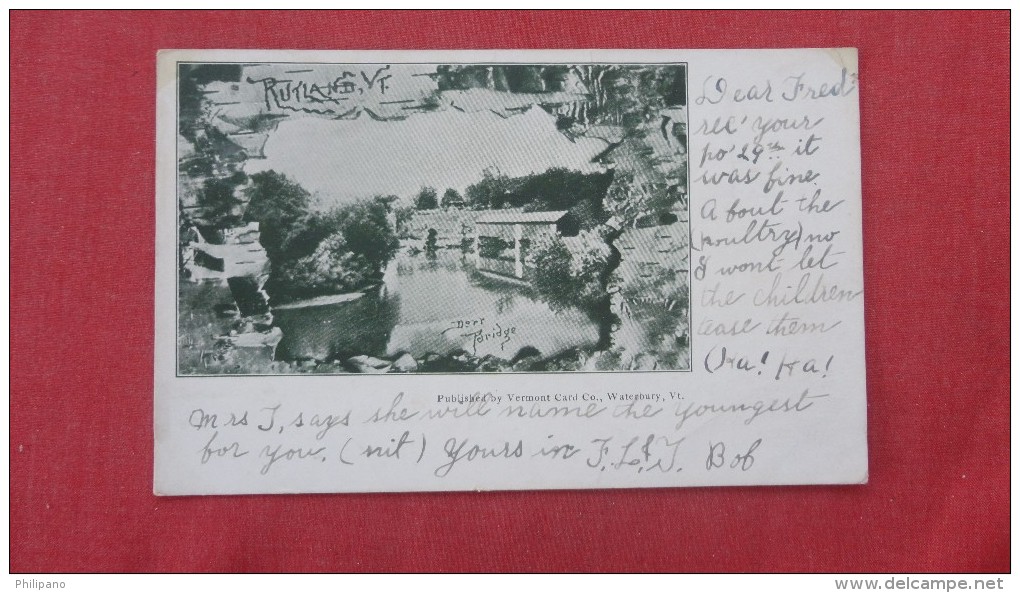 RUTLAND, VT.
Dorr
Bridge
Published by Vermont Card Co., Waterbury, Vt.
Dear Fred
rec' your
po' 29th it
was fine.
About the
(poultry) no
I wont let
the children
tease them
(Ha! Ha!
Mrs T, says she will name the youngest
for you. (nit) Yours in F. L. & T. Bob
Philipano
www.delcampe.net